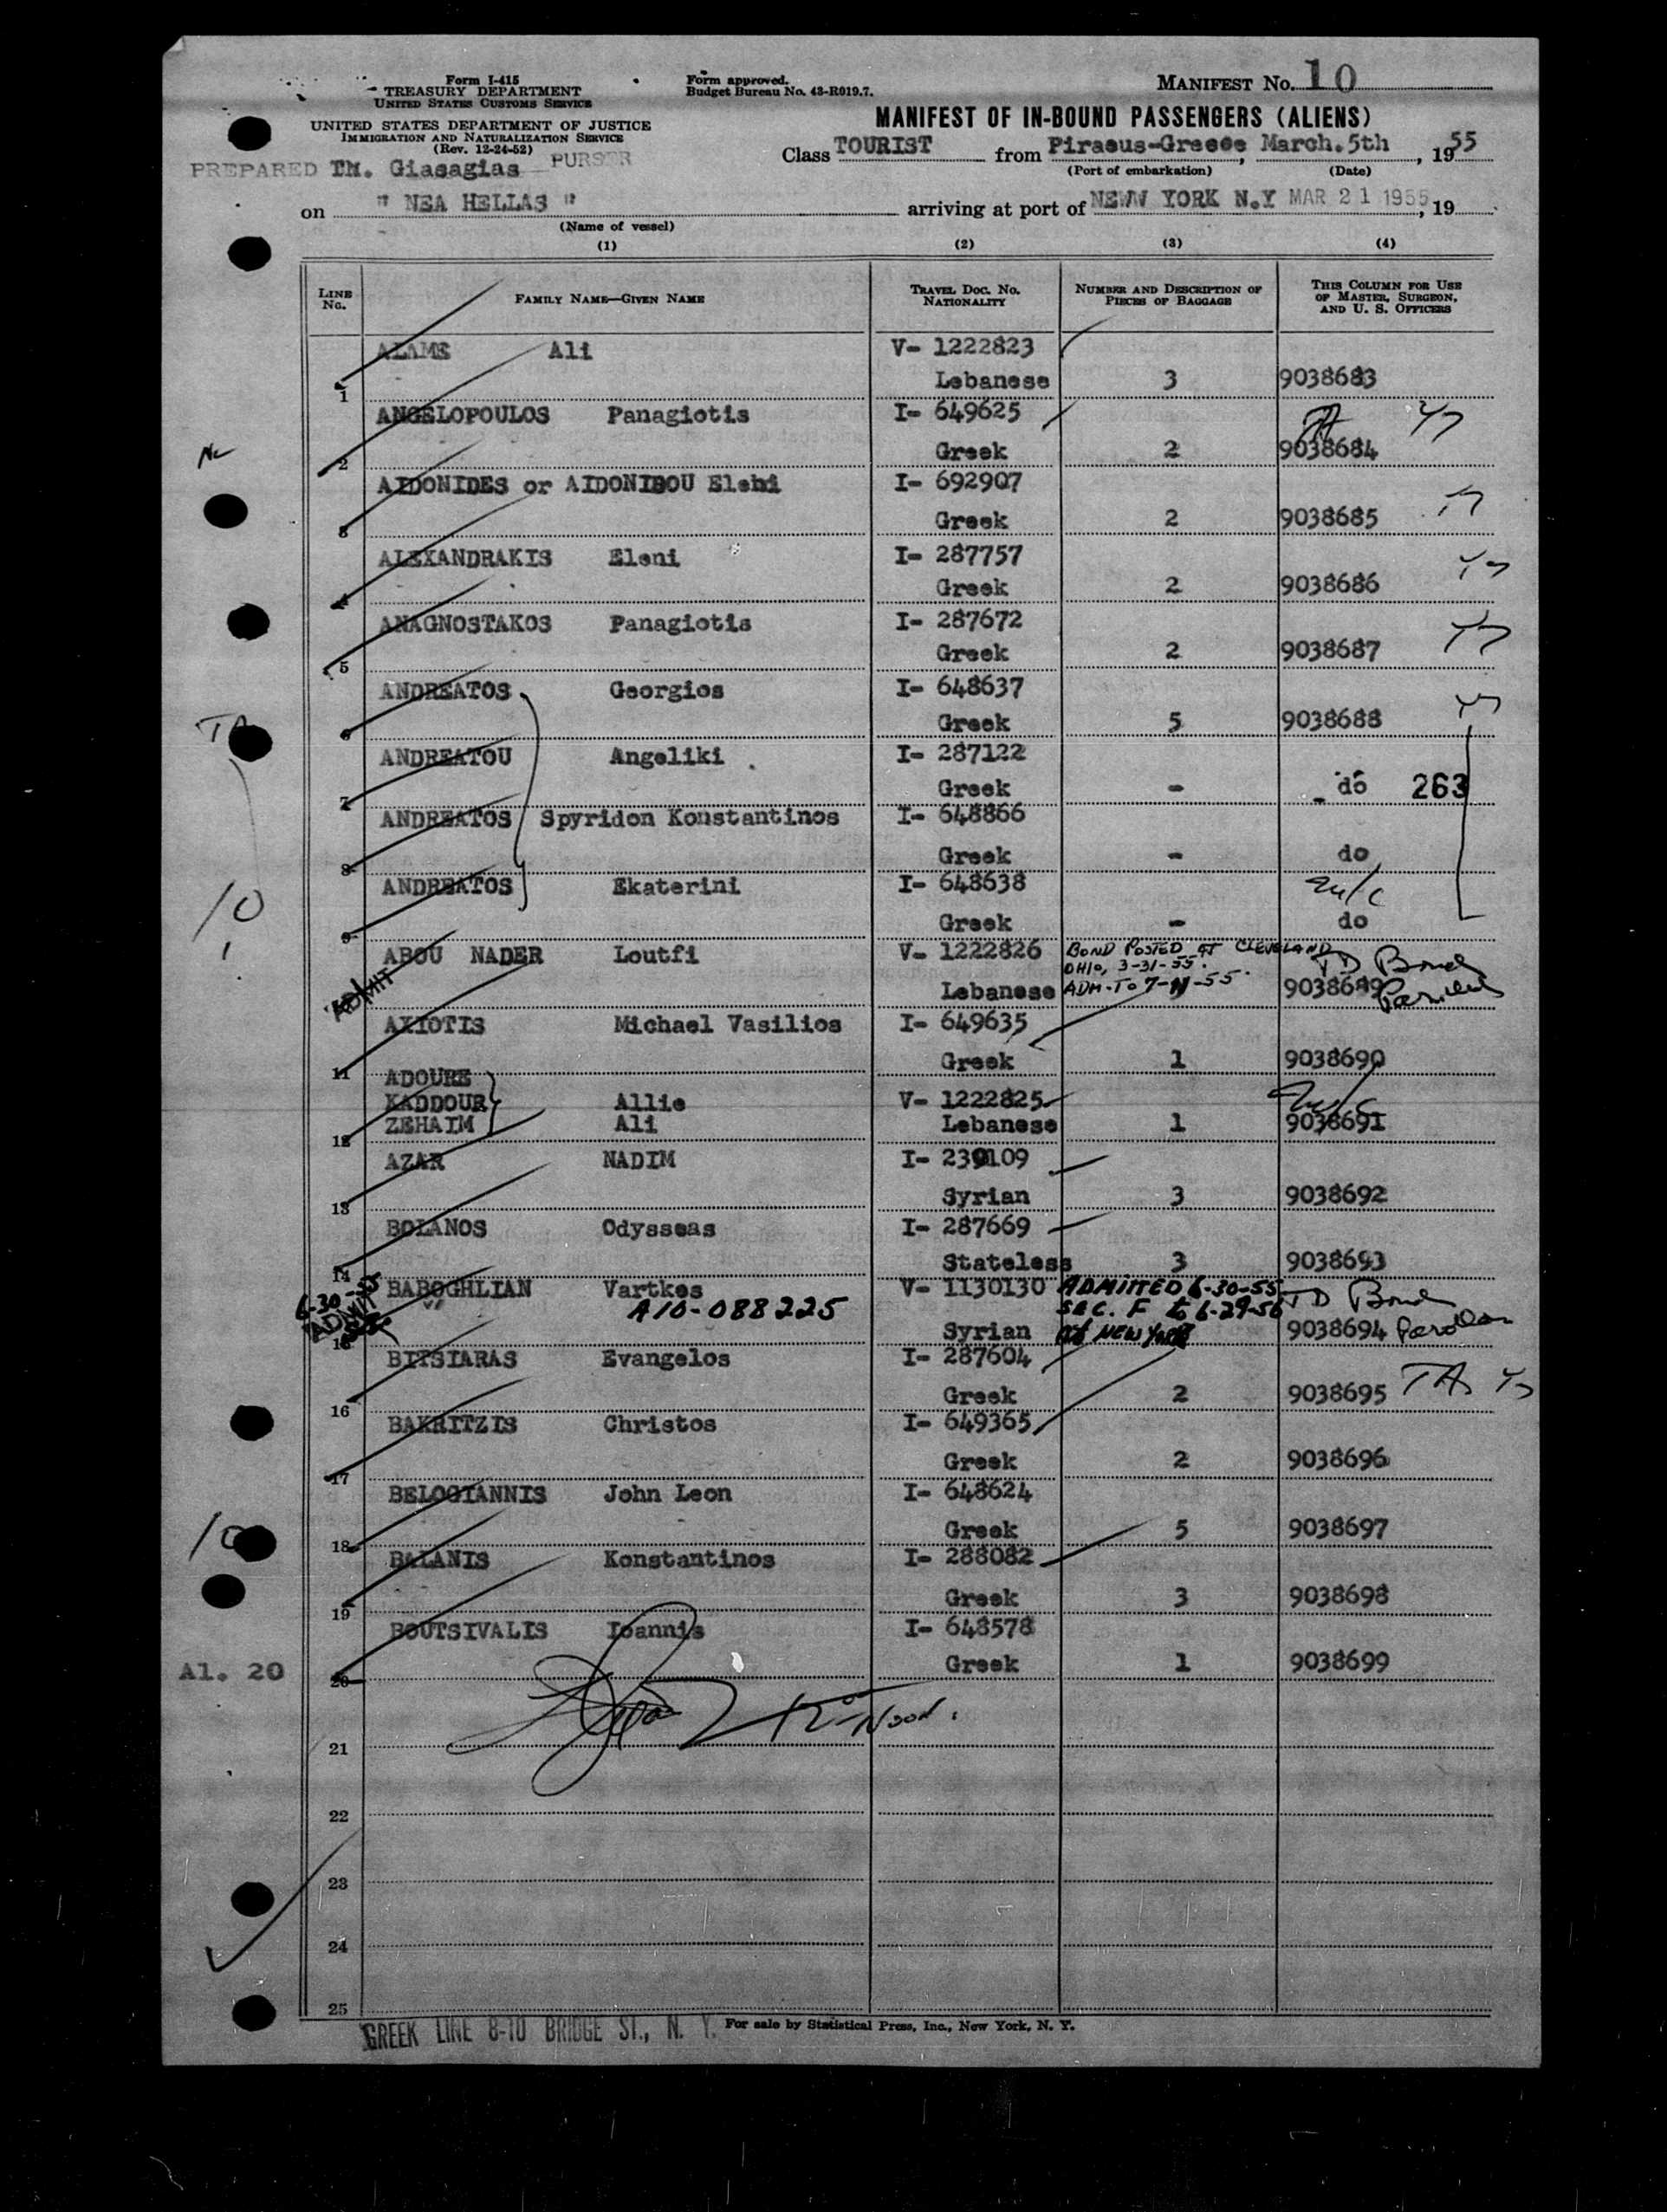 Form I-415
TREASURY DEPARTMENT
UNITED STATES CUSTOMS SERVICE
UNITED STATES DEPARTMENT OF JUSTICE
IMMIGRATION AND NATURALIZATION SERVICE
(Rev. 12-24-52)
Form approved.
Budget Bureau No. 43-R019.7.
MANIFEST No. 10
MANIFEST OF IN-BOUND PASSENGERS (ALIENS)
Class TOURIST from Piraeus-Greece, March.5th, 1955
(Port of embarkation) (Date)
PREPARED TH. Giasagias PURSER
on " NEA HELLAS " arriving at port of NEW YORK N.Y MAR 21 1955, 19
(Name of vessel)
(1) (2) (3) (4)
LINE No. FAMILY NAME—GIVEN NAME TRAVEL DOC. No. NATIONALITY NUMBER AND DESCRIPTION OF PIECES OF BAGGAGE THIS COLUMN FOR USE OF MASTER, SURGEON, AND U. S. OFFICERS
ALAME Ali V- 1222823
1 Lebanese 3 9038683
ANGELOPOULOS Panagiotis I- 649625 TA
2 Greek 2 9038684
AIDONIDES or AIDONIDOU Eleni I- 692907
3 Greek 2 9038685
ALEXANDRAKIS Eleni I- 287757
4 Greek 2 9038686
ANAGNOSTAKOS Panagiotis I- 287672
5 Greek 2 9038687
ANDREATOS Georgios I- 648637
6 Greek 5 9038688
TA
ANDREATOU Angeliki I- 287122
7 Greek - do 263
ANDREATOS Spyridon Konstantinos I- 648866
8 Greek - do
ANDREATOS Ekaterini I- 648638
9 Greek - do
10
ABOU NADER Loutfi V- 1222826 BOND POSTED AT CLEVELAND
OHIO, 3-31-55. TD Bond
ADMIT Lebanese ADM. TO 7-11-55. 9038689 Parolled
AXIOTIS Michael Vasilios I- 649635
11 Greek 1 9038690
ADOURE
KADDOUR Allie V- 1222825
12 ZEHAIM Ali Lebanese 1 9038691
AZAR NADIM I- 239109
13 Syrian 3 9038692
BOLANOS Odysseas I- 287669
14 Stateless 3 9038693
BABOGHLIAN Vartkes V- 1130130 ADMITTED 6-30-55
6-30-55 ADMIT A10-088225 SEC. F to 6-29-56 TD Bond
15 Syrian at NEW YORK 9038694 Parolled
BITSIARAS Evangelos I- 287604
16 Greek 2 9038695 TA
BAKRITZIS Christos I- 649365
17 Greek 2 9038696
BELOGIANNIS John Leon I- 648624
18 Greek 5 9038697
10
BALANIS Konstantinos I- 288082
19 Greek 3 9038698
BOUTSIVALIS Ioannis I- 648578
Al. 20 20 Greek 1 9038699
12- Noon.
21
22
23
24
25
GREEK LINE 8-10 BRIDGE ST., N. Y. For sale by Statistical Press, Inc., New York, N. Y.